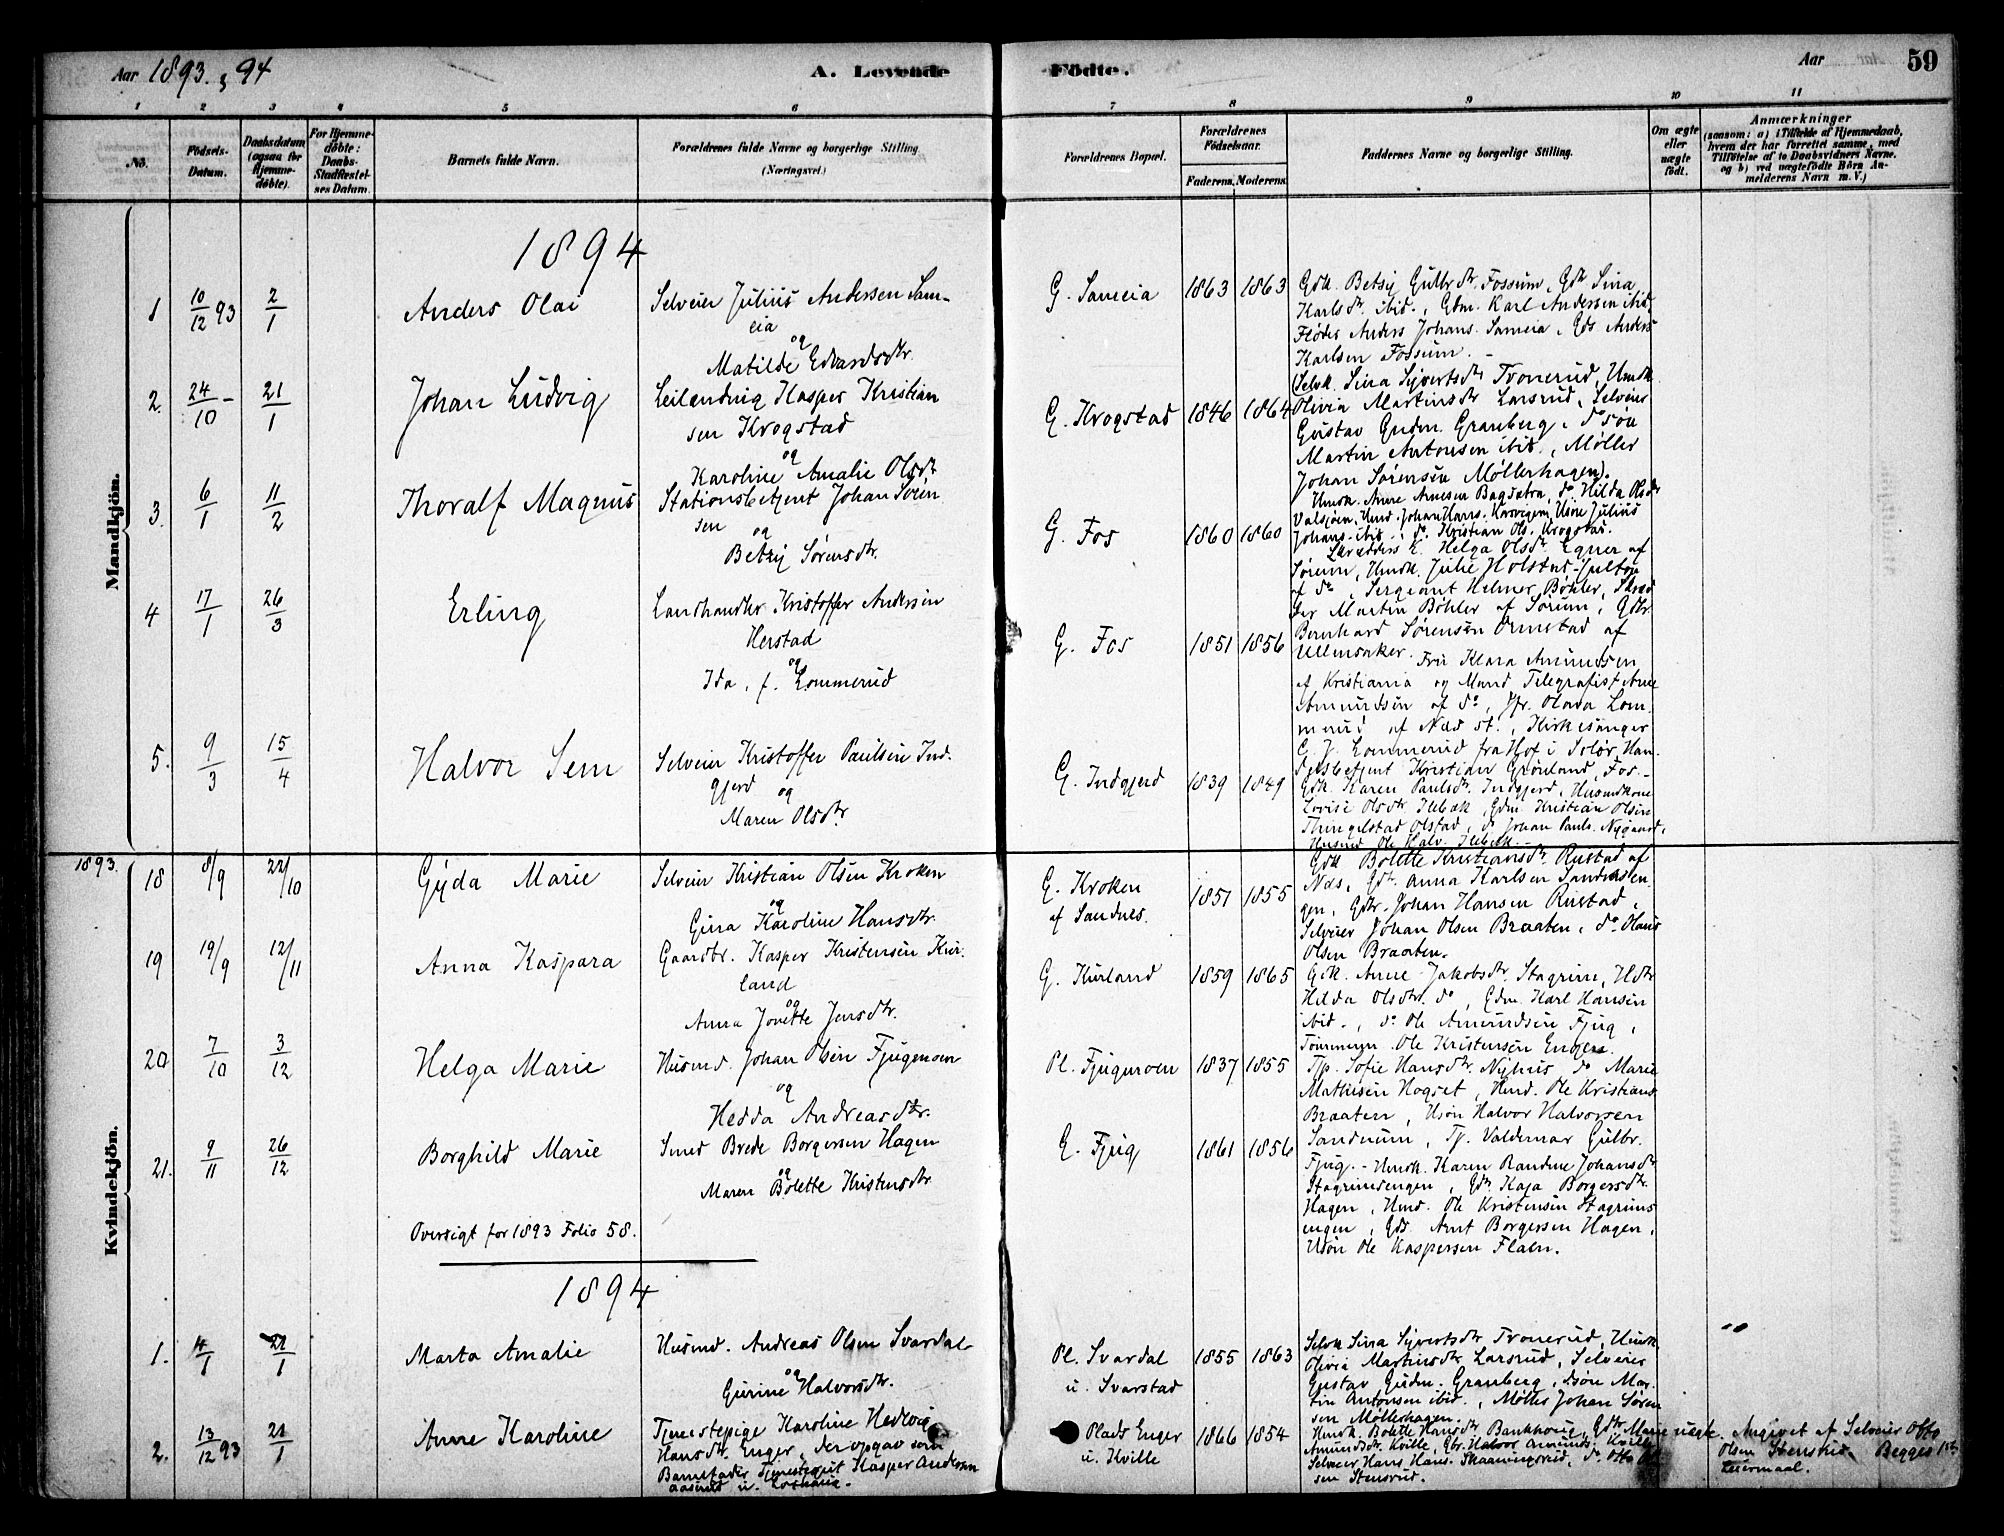 Aar 1893 & 94
A. Levende Födte.
Aar
59
1 2 3 4 5 6 7 8 9 10 11
No.
Födsels-Datum.
Daabsdatum (ogsaa for Hjemmedöbte).
For Hjemmedöbte: Daabs-Stadfæstelses Datum.
Barnets fulde Navn.
Forældrenes fulde Navne og borgerlige Stilling.
(Næringsvei.)
Forældrenes Bopæl.
Forældrenes Födselsaar.
Faderens. Moderens.
Faddernes Navne og borgerlige Stilling.
Om ægte eller uægte födt.
Anmærkninger
(saasom: a) i Tilfælde af Hjemmedaab,
hvem der har forrettet samme, med
Tilföielse af to Daabsvidners Navne,
og b) ved uægtefödte Börn Anmelderens Navn m. V.)
Mandkjön.
1894
1 10/12 93 2/1 Anders Olai
Selveier Julius Andersen Sameia
og
Matilde Edvardsdtr.
G. Sameia 1863 1863
Gdk. Betsy Gulbrdtr. Fossum, Gdtr Sina
Karlsdtr. ibid., Gdm. Karl Andersen ibid,
Fløder Anders Johans. Sameia, Gds Anders
Karlsen Fossum.
2. 24/10 - 21/1 Johan Ludvig
Leilending Kasper Kristian
sen Krogstad
og
Karoline Amalie Olsdtr
G. Krogstad 1846 1864
(Selvk. Sina Syvertsdtr Tronerud, Hmdk
Olivia Martinsdtr Larsrud, Selveier
Gustav Gudm. Granberg, do søn
Martin Antonsen ibid, Møller
Johan Sørensen Møllerhagen).
3. 6/1 11/2 Thoralf Magnus
Stationsbetjent Johan Sören
sen
og
Betzy Sørensdtr.
G. Fos 1860 1860
Hmdk. Anne Arnesen Bagsætra, do Hilda Olsdtr
Valsjøen, Hmd. Johan Hans. Karvigen, Usøn Julius
Johans. ibid., do Kristian Ols. Krogstad.
4 17/1 26/3 Erling
Landhandler Kristoffer Andersen
Herstad
og
Ida, f. Lommerud
G. Fos 1851 1856
K. Helga Olsdtr Egner af
Sørum, Hmdk. Julie Holstad
af do, Sergeant Helmer Bøhler,
Martin Bøhler af Sørum, Gdbr.
Bernhard Sørensen Ormstad af
Ullensaker. Fru Klara Amundsen
af Kristiania og Mand Telegrafist Arne
Amundsen af do, Jfr. Olava Lom
merud af Næs st., Kirkesanger
Lommerud fra Hof i Solør, Han
delsbetjent Kristian Grønland, Fos.
5. 9/3 15/4 Halvor Sem
Selveier Kristoffer Paulsen Ind-
gjerd og
Maren Olsdtr.
G. Indgjerd 1839 1849
Gdk. Karen Paulsdtr. Indgjerd, Husmdkone
Lovise Olsdtr Ilebæk, Gdm. Kristian Olsen
Thingelstad Olstad, do Johan Pauls. Nygaard,
Husmd Ole Halv. Ilebæk.
Kvindekjön.
1893.
18 8/9 22/10 Gyda Marie
Selveier Kristian Olsen Kroken
og
Gina Karoline Hansdtr.
G. Kroken
af Sandnes.
1851 1855
Gdk Bolette Kristiansdtr. Rustad af
Næs, Gdtr. Anna Karlsen Sandnesen
gen, Gdbr. Johan Hansen Rustad,
Selveier Johan Olsen Braaten, do Olaus
Olsen Braaten.
19 19/9 12/11 Anna Kaspara
Gaardbr. Kasper Kristensen Kur-
land
og
Anna Jonette Jensdtr.
G. Kurland 1859 1865
Gdk. Anne Jakobsdtr. Stagrim, Hdtr
Hilda Olsdtr. do, Gdm. Karl Hansen
ibid., do Ole Amundsen Fjug,
Tømmerm. Ole Kristensen Enger.
20 7/10 3/12 Helga Marie
Husmd. Johan Olsen Fjugemoen
og
Hedda Andreasdtr.
Pl. Fjugmoen 1837 1855
Tjp. Sofie Hansdtr. Nyhus do Marie
Mathisen Hogset, Hmd. Ole Kristians
Braaten, Usøn Halvor Halvorsen
Sanderum, Tj. Valdemar Gulbr.
Fjug.
21. 9/11 26/12 Borghild Marie
Smed Brede Borgersen Hagen
og
Maren Bolette Kristensdtr
E. Fjug 1861 1856
Hmdk. Karen Randine Johansdtr
Stagrimsengen, Gdtr Kaja Borgersdtr.
Hagen, Hmd. Ole Kristensen Stagrims
engen, Gds. Arnt Borgersen Hagen,
Usøn Ole Kaspersen Flaen.
Oversigt for 1893 Folio 58.
1894
1. 4/1 21/1 Marta Amalie
Husmd. Andreas Olsen Svardal
og
Gurine Halvorsdtr.
Pl. Svardal
u. Svarstad
1855 1863
Selvk Sina Syvertsdtr Tronerud, Hmdk
Olivia Martinsdtr Larsrud, Selveier
Gustav Gudm. Granberg, dsøn Mar
tin Antonsen ibid., Møller Johan Søren
sen Møllerhagen.
2. 13/12 93 21/1 Anne Karoline
Tjenestepige Karoline Hedvig
Hansdtr Enger, der opgav som
Barnefader Tjenestegut Kasper Andersen
Aaserud u.
Plads Enger
u. Kville
1866 1854
Hmdk. Bolette Hansdtr. Bankhoug, Gdtr. Marie
Amundsdtr. Kville, Gbr. Halvor Amunds. Kville
Selveier Hans Hans. Skaaningsrud, do Otto Ol
sen Stensrud.
uægte.
Angivet af Selveier Otto
Olsen Stensrud. Begges 1ste
Leiermaal.